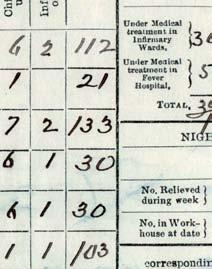 Under Medical
treatment in
Infirmary
Wards,
Under Medical
treatment in
Fever
Hospital,
TOTAL,
6 2 112
1 21
7 2 133
6 1 30
6 1 30
1 1 103
No. Relieved
during week
No. in Work-
house at date